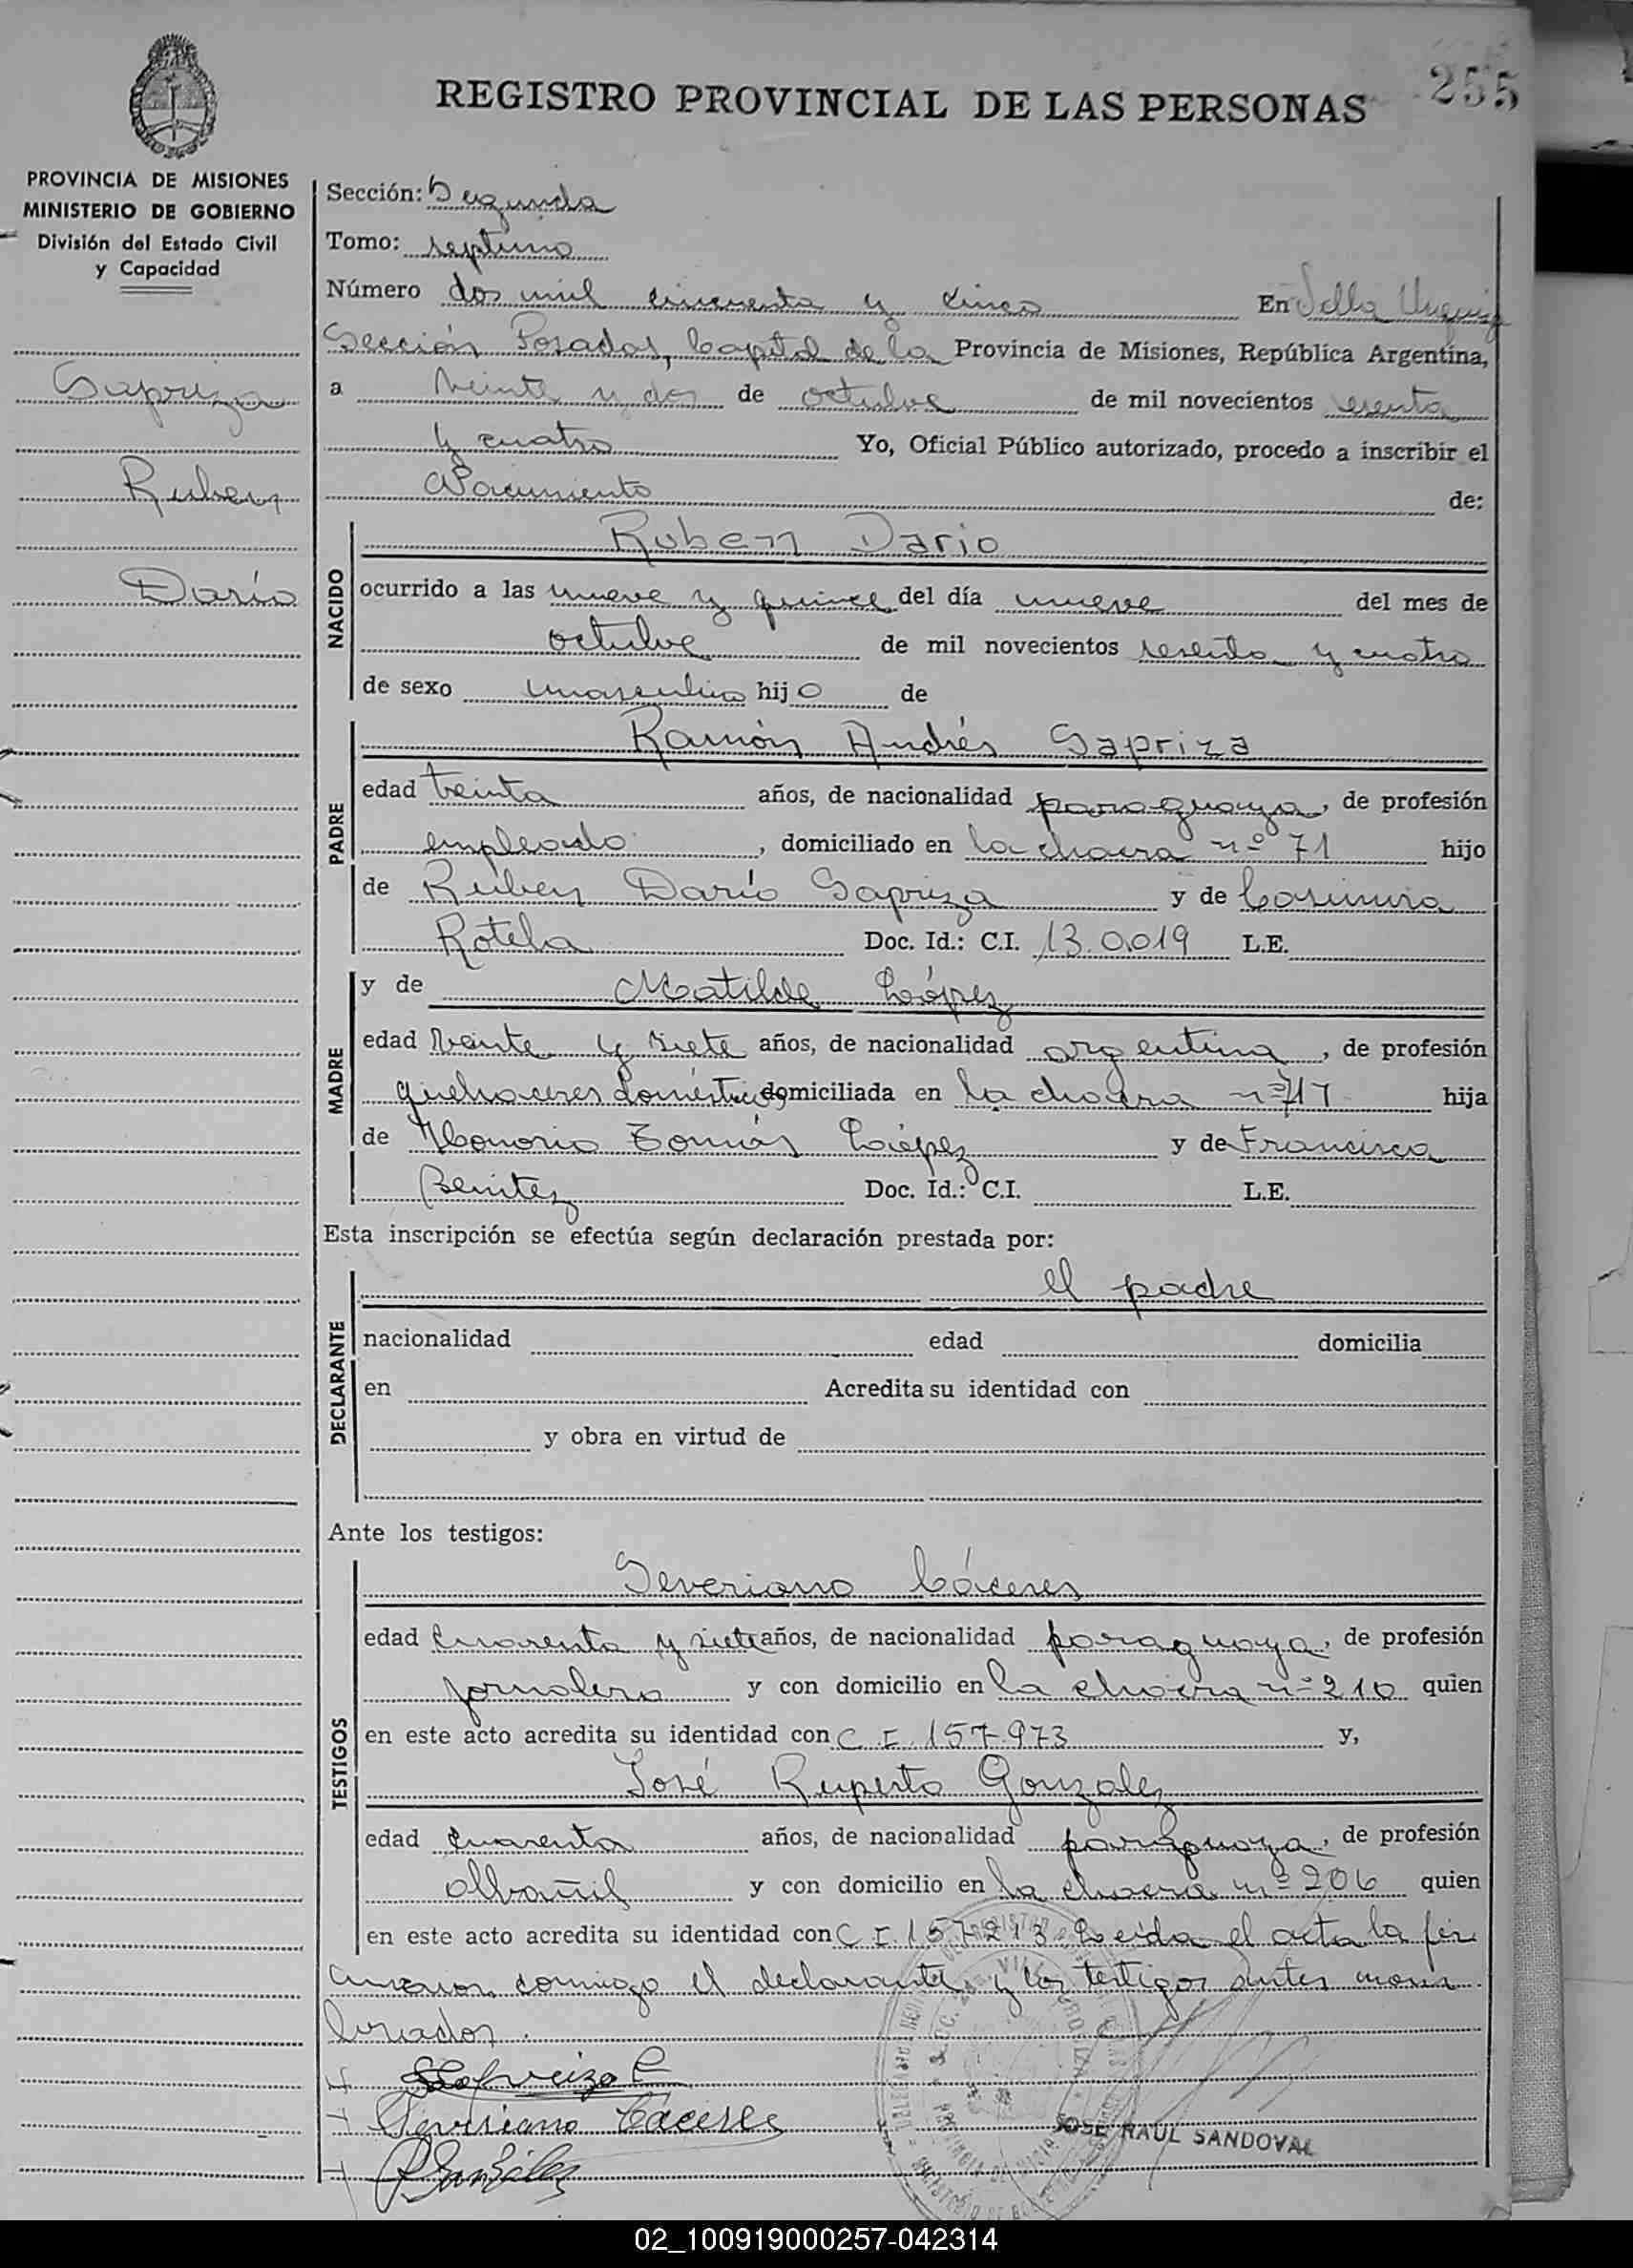 255
REGISTRO PROVINCIAL DE LAS PERSONAS
PROVINCIA DE MISIONES
MINISTERIO DE GOBIERNO
División del Estado Civil
y Capacidad
Sapriza
Ruben
Darío
Sección: Segunda
Tomo: septimo
Número dos mil cincuenta y cinco En Villa Urquiza
Sección Posadas, Capital de la Provincia de Misiones, República Argentina,
a veinte y dos de octubre de mil novecientos sesenta
y cuatro Yo, Oficial Público autorizado, procedo a inscribir el
Nacimiento de:
NACIDO
Ruben Dario
ocurrido a las nueve y quince del día nueve del mes de
octubre de mil novecientos sesenta y cuatro
de sexo masculino hijo de
PADRE
Ramón Andrés Sapriza
edad treinta años, de nacionalidad paraguaya, de profesión
empleado, domiciliado en la chacra nº 71 hijo
de Rubén Darío Sapriza y de Casimira
Rotela Doc. Id.: C.I. 13.0.019 L.E.
MADRE
y de Matilde López
edad veinte y siete años, de nacionalidad argentina, de profesión
quehaceres domésticos domiciliada en la chacra nº 71 hija
de Honorio Tomás López y de Francisca
Benitez Doc. Id.: C.I. L.E.
Esta inscripción se efectúa según declaración prestada por:
DECLARANTE
el padre
nacionalidad edad domicilia
en Acredita su identidad con
y obra en virtud de
Ante los testigos:
TESTIGOS
Severiano Cáceres
edad cuarenta y siete años, de nacionalidad paraguaya, de profesión
jornalero y con domicilio en la chacra nº 210 quien
en este acto acredita su identidad con C.I. 157.973 y,
José Ruperto Gonzalez
edad cuarenta años, de nacionalidad paraguaya, de profesión
albañil y con domicilio en la chacra nº 206 quien
en este acto acredita su identidad con C I 157213. Leida el acta la fir
maron conmigo el declarante y los testigos antes mom
brados.
Severiano Caceres
JOSE RAUL SANDOVAL
02_100919000257-042314